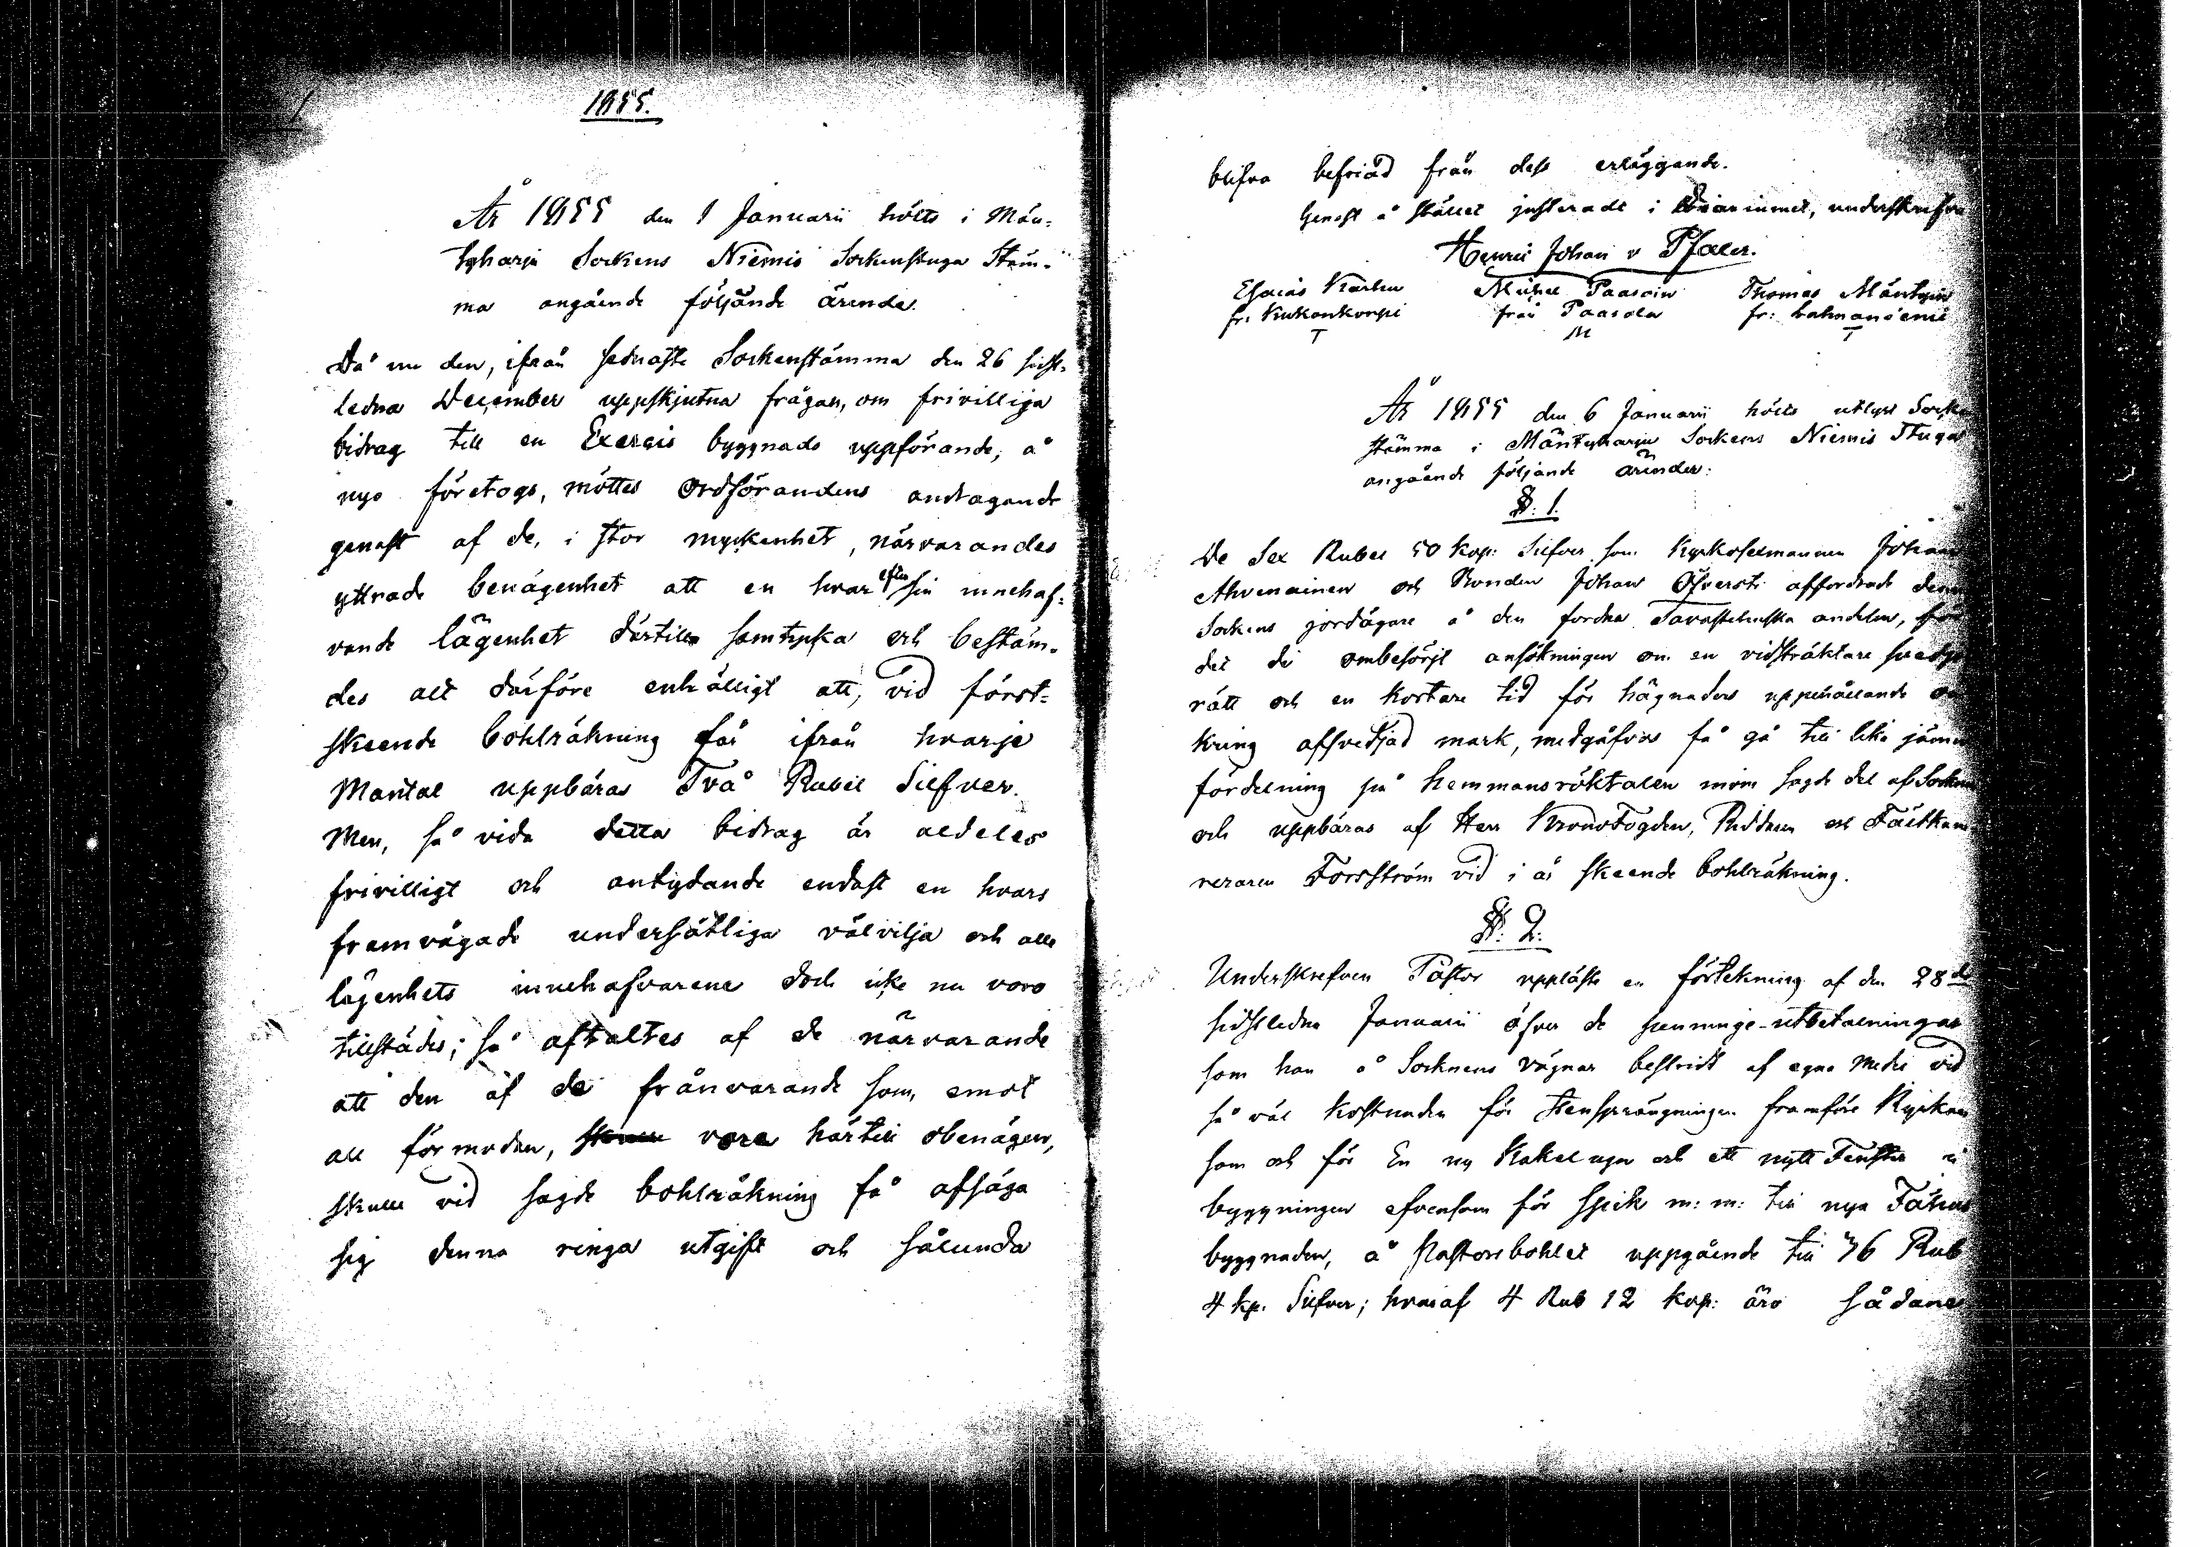 1855.
År 1855 den 1 Januarii hölts i Män-
tyharju Sockens Niemis Sockenstuga Stäm-
ma angående följande ärende.
Då nu den, ifrån sednaste Sockenstämma den 26 sidst-
ledna December uppskjutna frågan, om frivilliga
bidrag till en Exercis byggnads uppförande, å
nyo företogs, möttes Ordförandens andragande
genast af de, i stor myckenhet, närvarandes
yttrade benägenhet att en hvar efter sin innehaf-
vande lägenhet därtill samtycka och bestäm-
des alt därföre enhälligt att, vid först-
skeende bohlräkning får ifrån hvarje
Mantal uppbäras Två Rubel Silfver.
Men, så vida detta bidrag är aldeles
frivilligt och antydande endast en hvars
framvägade undersåtliga välvilja och alla
lägenhets innehafvarene doch icke nu voro
tillstädes; så aftaltes af de närvarande
att den af de frånvarande som, emot
all förmodan, skulle vore härtill obenägen,
skulle vid sagde bohlräkning få afsäga
sig denna ringa utgift och sålunda
blifva befriad från dess erläggande.
Genast å stället justeradt i Diariumet, underskrifva
Henric Johan v Pfaler.
Esaias Kärhu Michel Paasoin Thomas Mäntynen
fr. Kukonkorpi från Paasola fr: Lahnaniemi
T M T
År 1855 den 6 Januarii hölts utlyst Socke
stämma i Mäntyharju Sockens Niemis Stuga
angående följande ärinder:
§. 1.
De Sex Rubel 50 kop: Silfver som Kyrkosexmannen Johan
Ahvenainen och Bonden Johan Öfversti affordrade denna
Sockens jordägare å den fordna Tavastehuska andelen, för
det de ombesörjt ansökningen om en vidsträktare svedje
rätt och en kortare tid för hägnaders uppehållande om
kring afsvedjad mark, medgåfvos få gå till lika jämn
fördelning på hemmansröktalen inom sagde del af Socknen
och uppbäras af Herr KronoFogden, Riddaren och Fältkam
reraren Forsström vid i år skeende bohlräkning.
§. 2.
Underskrefven Pastor uppläste en förtekning af den 28de
sidstledne Januarii öfver de pennninge-utbetalningar
som han å Socknens vägnar bestridt af egna medel vid
så väl kostnaden för stensprängningen framföre Kyrkan
som och för En ny Kakelugn och ett nytt Fenster i
byggningen äfvensom för spik m: m: till nya Fähus
byggnaden, å Pastorsbohlet uppgående till 36 Rub
4 kp. Silfver; hvaraf 4 Rub 12 kop: äro sådane